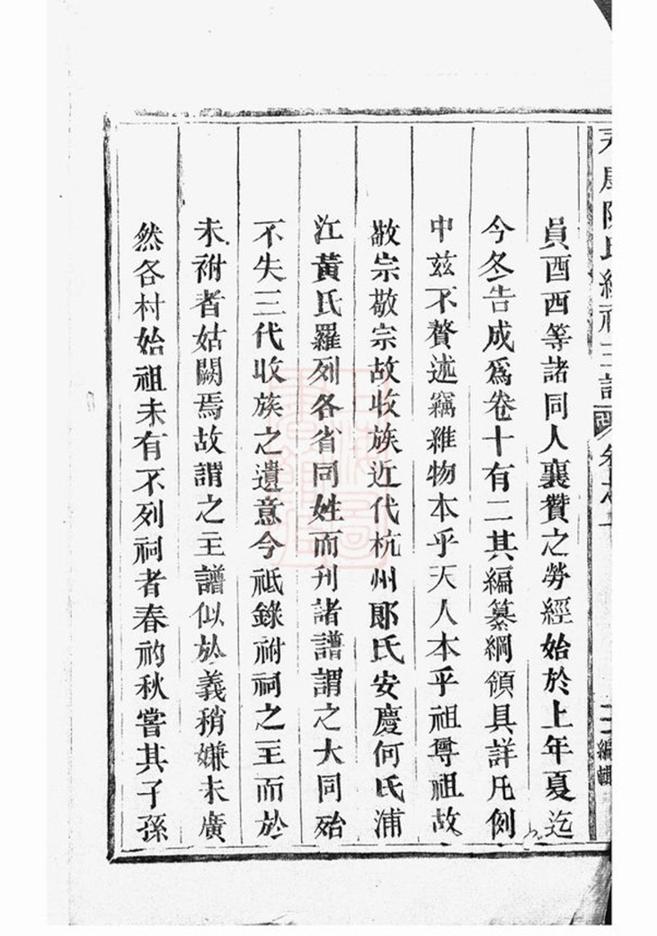 員酉酉等諸同人襄贊之勞經始於上年夏迄
今冬告成爲卷十有二其編纂綱領具詳凡例
中兹不贅述竊維物本乎天人本乎祖尊祖故
敬宗敬宗故收族近代杭州郎氏安慶何氏浦
江黃氏羅列各省同姓而刊諸譜謂之大同殆
不失三代收族之遺意今祇錄祔祠之主而於
未祔者姑闕焉故謂之主譜似於義稍嫌未廣
然各村始祖未有不列祠者春礿秋嘗其子孫
陳氏 祠主譜 卷之一
編輯